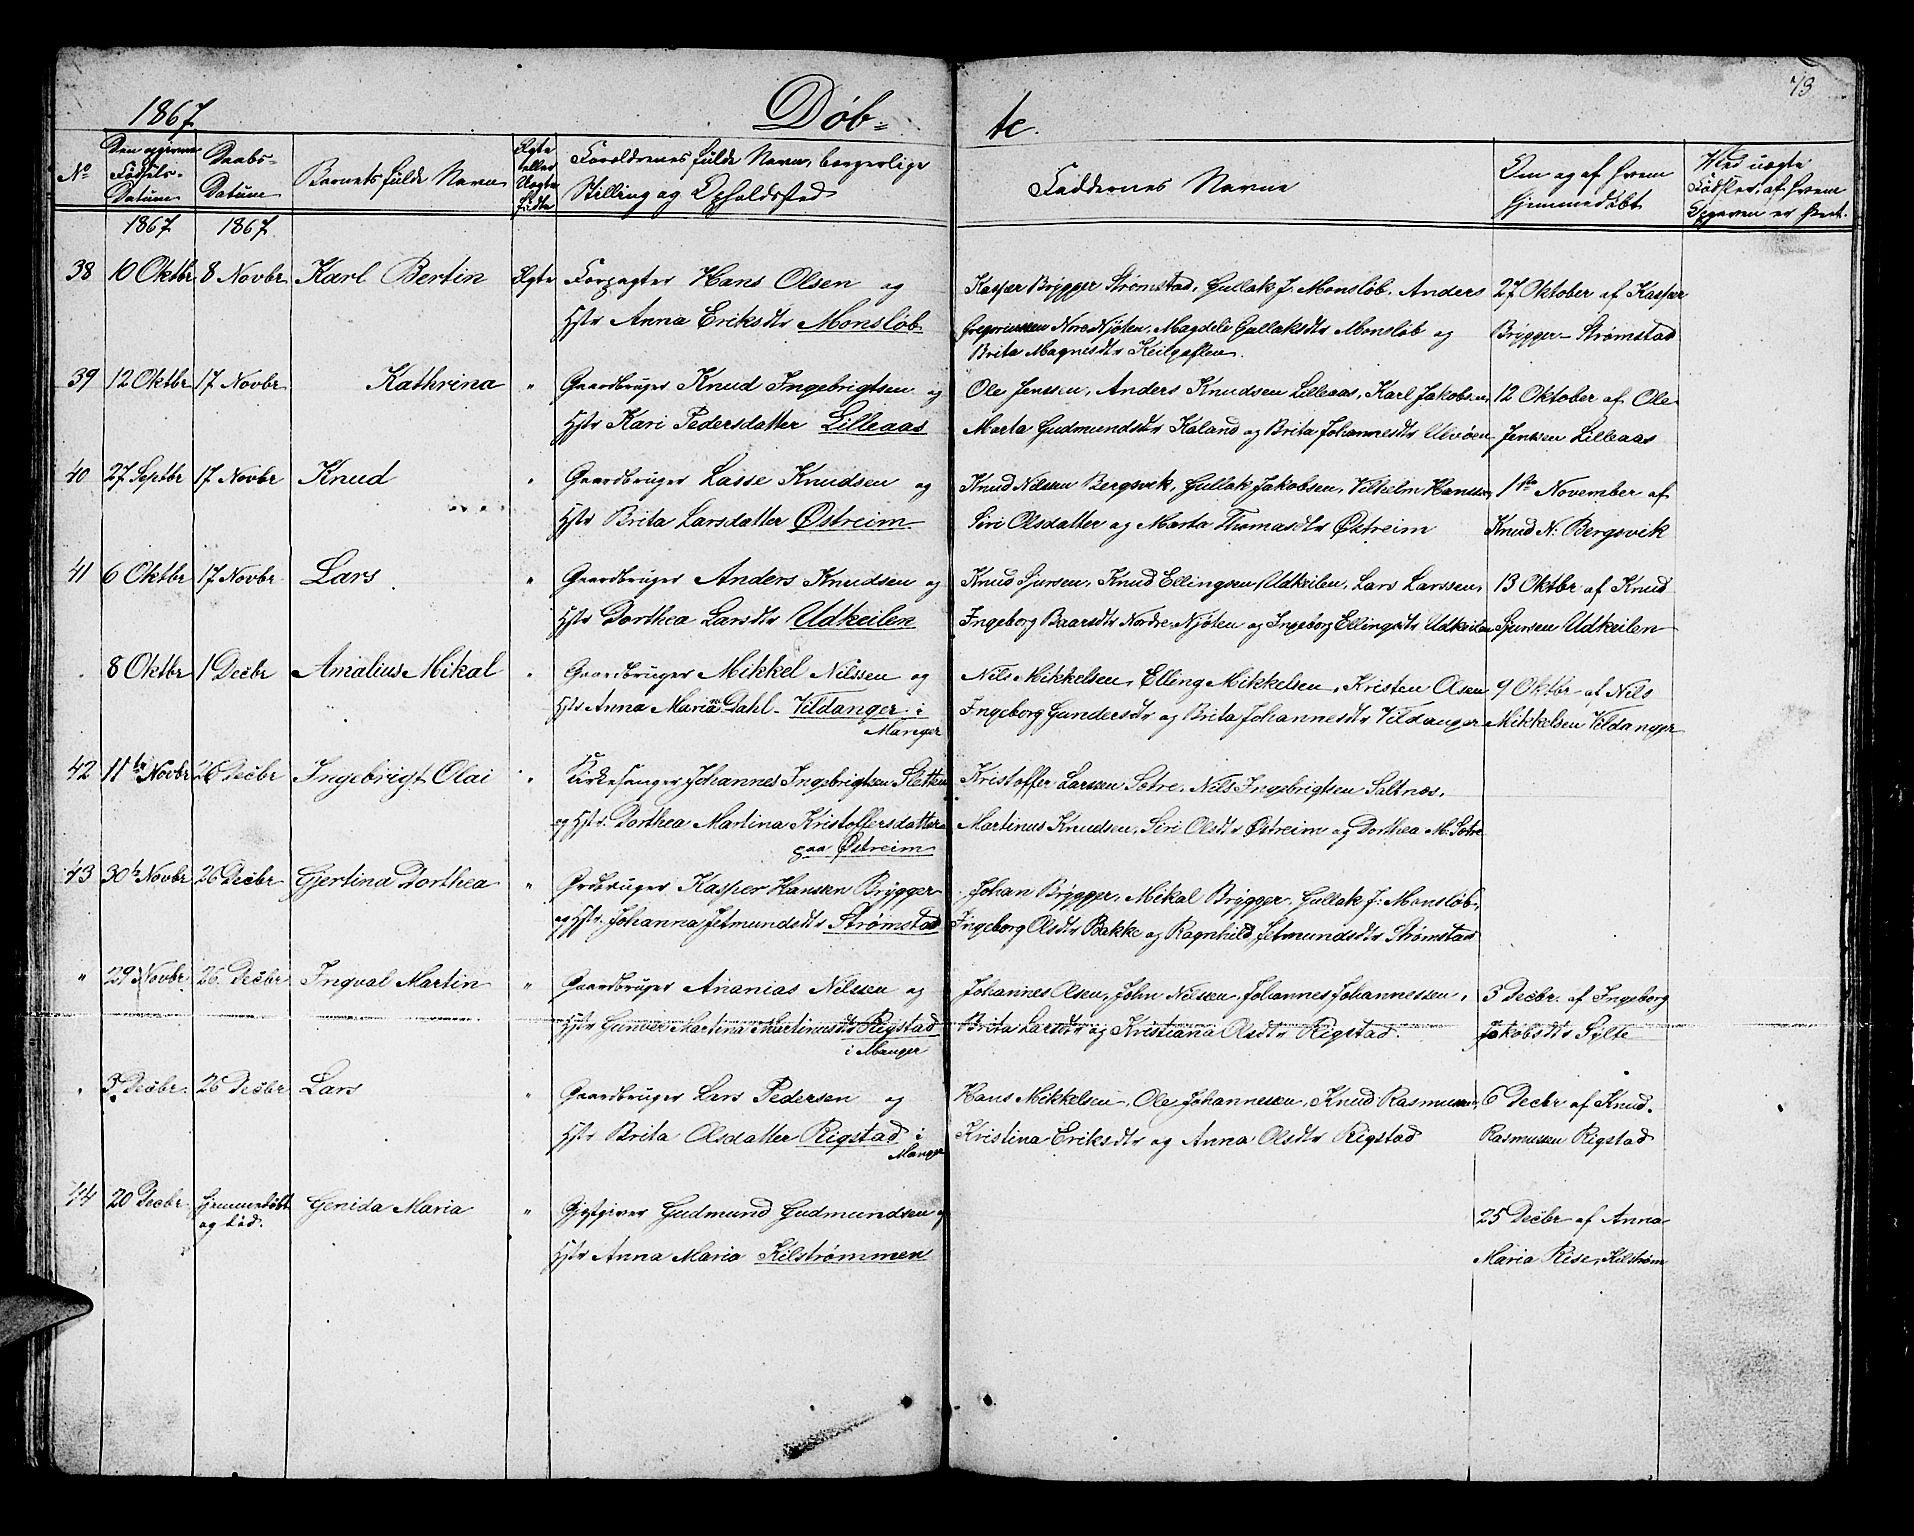 1867
Døb=
te.
73
No
Den nyfødtes Fødsels-Datum
Daabs-Datum
Barnets fulde Navn
Ægte eller Uægte født
Forældrenes fulde Navn, borgerlige
Stilling og Opholdssted
Faddernes Navne
Om og af hvem
hjemmedøbt
Ved uægte
Fødsler, af hvem
Opgaven er skeet.
1867 1867
38 10 Oktbr 8 Novbr Karl Bertin Ægte Forpagter Hans Olsen og
Hstr Anna Eriksdtr Monsløb
Kasper Brygger Strømstad, Gullak J. Monsløb, Anders
Gregoriussen Nore Njøten, Magdeli Gullaksdtr Monsløb og
Brita Magnesdtr Keilgaflen.
27 Oktober af Kasper
Brygger Strømstad
39 12 Oktbr 17 Novbr Kathrina " Gaardbruger Knud Ingebrigtsen og
Hstr Kari Pedersdatter Lilleaas
Ole Jenssen, Anders Knudsen Lilleaas, Karl Jakobsen,
Marta Gudmundsdtr Kaland og Brita Johannesdtr Ulvøen
12 Oktober af Ole
Jenssen Lilleaas
40 27 Septbr 17 Novbr Knud " Gaardbruger Lasse Knudsen og
Hstr Brita Larsdatter Østreim
Knud Nilssen Bergsvik, Gullak Jakobsen, Vilhelm Hanssen,
Siri Olsdatter og Marta Thomasdtr Østreim
1ste November af
Knud N: Bergsvik
41 6 Oktbr 17 Novbr Lars " Gaardbruger Anders Knudsen og
Hstr Dorthea Larsdtr Udkeilen
Knud Sjursen, Knud Ellingsen Udkeilen, Lars Larssen,
Ingeborg Baarsdtr Nordre Njøten og Ingeborg Ellingsdtr Udkeilen
13 Oktbr af Knud
Sjursen Udkeilen
" 8 Oktbr 1 Decbr Amalius Mikal " Gaardbruger Mikkel Nilssen og
Hstr Anna Maria Dahl - Vildanger i
Manger
Nils Mikkelsen, Elling Mikkelsen, Kristen Olsen
Ingeborg Gundersdtr og Brita Johannesdtr Vildanger
9 Oktbr af Nils
Mikkelsen Vildanger
42 11te Novbr 26 Decbr Ingebrigt Olai " Kirkesanger Johannes Ingebrigtsen Sletten
og Hstr. Dorthea Martina Kristoffersdatter
paa Østreim
Kristoffer Larssen Sotre, Nils Ingebrigtsen Saltnæs,
Martinus Knudsen, Siri Olsdtr Østreim og Dorthea M. Sotre
43 30te Novbr 26 Decbr Gjertina Dorthea " Ordbruger Kasper Hanssen Brygger
og Hstr. Johanna Jetmundsdtr Strømstad
Johan Brygger, Mikal Brygger, Gullak J: Monsløb,
Ingeborg Olsdtr Bakke og Ragnhild Jetmundsdtr Strømstad
" 29 Novbr. 26 Decbr Ingval Martin " Gaardbruger Ananias Nilssen og
Hstr Martina Martinusdtr Rigstad
i Manger
Johannes Olsen, John Nilssen, Johannes Johannessen,
Brita Larsdtr og Kristiana Olsdtr Rigstad.
3 Decbr. af Ingeborg
Jakobsdtr Sylte
" 3 Decbr. 26 Decbr Lars " Gaardbruger Lars Pedersen og
Hstr Brita Olsdatter Rigstad i
Manger
Hans Mikkelsen, Ole Johannessen, Knud Rasmussen,
Kristina Eriksdtr og Anna Olsdtr Rigstad
6 Decbr af Knud
Rasmussen Rigstad
44 20 Decbr. Hjemmedøbt
og død.
Genida Maria " Gjestgiver Gudmund Gudmundsen og
Hstr Anna Maria Kilstrømmen
25 Decbr af Anna
Maria Rise, Kilstrøm